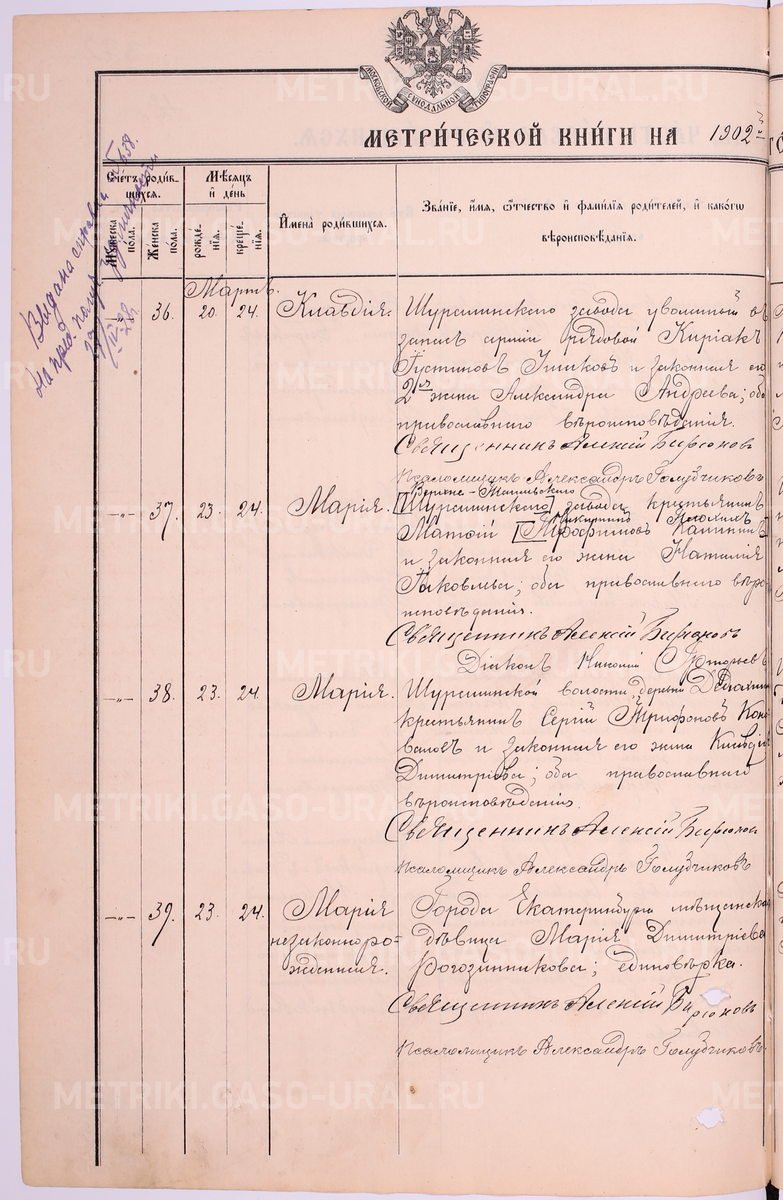 МОСКОВСКОЙ СѴНОДАЛЬНОЙ ТИПОГРАФІИ
МЕТРИ́ЧЕСКОЙ КНИ́ГИ НА 1902
Выдана справка
Счётъ роди́в-
шихся.
Мѣсяцъ
и҆ де́нь
Му́жеска по́ла.
Же́нска по́ла.
рожде́нія.
креще́нія.
И҆мена̀ роди́вшихся.
Зва́ніе, и҆́мя, ѻ҆́тчество и҆ фами́лія роди́телей, и҆ како́гѡ
вѣроисповѣ́данія.
Мартъ.
36. 20. 24. Клавдія. Шуралинскаго завода уволенный въ
запасъ арміи рядовой Киріакъ
Іустиновъ и законная его
2я жена Александра Андреева; оба
православнаго вѣроисповѣданія.
Священникъ Алексій Бирюковъ
Псаломщикъ Александръ Голубчиковъ
Верхне-Тагильскаго
-„- 37. 23. 24. Марія. [Шуралинскаго] завода крестьянинъ
Матѳій [Трофимовъ
и законная его жена Наталія
Іаковлева; оба православнаго вѣро-
исповѣданія.
Священникъ Алексій Бирюковъ
Діаконъ Николай
-„- 38. 23. 24. Марія. Шуралинской волости, деревни
крестьянинъ Сергій Трифоновъ Коно-
валовъ и законная его жена Клавдія
Димитріева; оба православнаго
вѣроисповѣданія.
Священникъ Алексій Бирюковъ
Псаломщикъ Александръ Голубчиковъ
-„- 39. 23. 24. Марія Города Екатеринбурга мѣщанская
незаконноро- дѣвица Марія Димитріева
жденная. Рогозинникова; единовѣрка.
Священникъ Алексій Бирюковъ
Псаломщикъ Александръ Голубчиковъ
METRIKI.GASO-URAL.RU